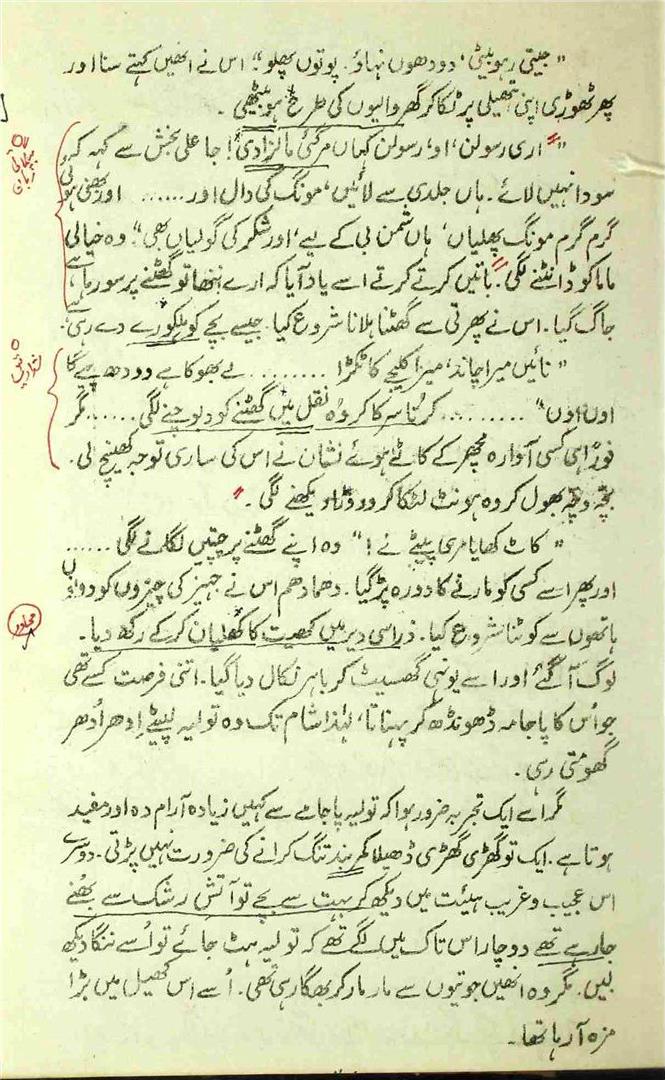 ”جیتی رہو بیٹی، دودھوں نہاؤ۔ پوتوں پھلو“؛ اس نے انھیں کہتے سنا اور
پھر ٹھوڑی اپنی ہتھیلی پر ٹکا کر گھر والیوں کی طرح ہو بیٹھی۔
”اری رسولن، او، رسولن کہاں مر گئی مالزادی! جا علی بخش سے کہہ کہ
سودا نہیں لائے۔ ہاں جلدی سے لائیں، مونگ کی دال اور...... اور بھنی ہوئی
گرم گرم مونگ پھلیاں، ہاں شمن بی کے لیے، اور شکر کی گولیاں بھی“: وہ خیالی
ماما کو ڈانٹنے لگی۔ باتیں کرتے کرتے اسے یاد آیا کہ ارے ننھا تو گھٹنے پر سو رہا ہے
جاگ گیا۔ اس نے پھرتی سے گھٹنا ہلانا شروع کیا۔ جیسے بچے کو ہلکورے دے رہی ہے
”نائیں میرا چاند، میرا کلیجے کا ٹکڑا ........ بے بھوکا ہے دودھ پیے گا
اوں اوں“ ......... کرتا سرکا کر وہ نقل میں گھٹنے کو دبوچنے لگی...... مگر
فوراً ہی کسی آوارہ مچھر کے کاٹے ہوئے نشان نے اس کی ساری توجہ کھینچ لی۔
بچہ وچہ بھول کر وہ ہونٹ لٹکا کر ددوڑا دیکھنے لگی۔
”کاٹ کھایا مری پیٹے نے!“ وہ اپنے گھٹنے پر چپتیں لگانے لگی......
اور پھر اسے کسی کو مارنے کا دورہ پڑ گیا۔ دھمادھم اس نے جہیز کی چیزوں کو دونوں
ہاتھوں سے کوٹنا شروع کیا۔ ذرا سی دیر میں کھیت کا کھلیان کر کے رکھ دیا۔
محاورہ
لوگ آ گئے اور اسے یونہی گھسیٹ کر باہر نکال دیا گیا۔ اتنی فرصت کسے تھی
جو اُس کا پاجامہ ڈھونڈھ کر پہناتا، لہٰذا شام تک وہ تولیہ لپیٹے اِدھر اُدھر
گھومتی رہی۔
مگر اسے ایک تجربہ ضرور ہوا کہ تولیہ پاجامے سے کہیں زیادہ آرام دہ اور مفید
ہوتا ہے۔ ایک تو گھڑی گھڑی ڈھیلا کمر بند تنگ کرانے کی ضرورت نہیں پڑتی۔ دوسرے
اس عجیب و غریب ہیئت میں دیکھ کر بہت سے بچے تو آتش رشک سے بھُنے
جا رہے تھے دو چار اس تاک میں لگے تھے کہ تولیہ ہٹ جائے تو اُسے ننگا دیکھ
لیں۔ مگر وہ انھیں جوتیوں سے مار مار کر بھگا رہی تھی۔ اُسے اس کھیل میں بڑا
مزہ آ رہا تھا۔